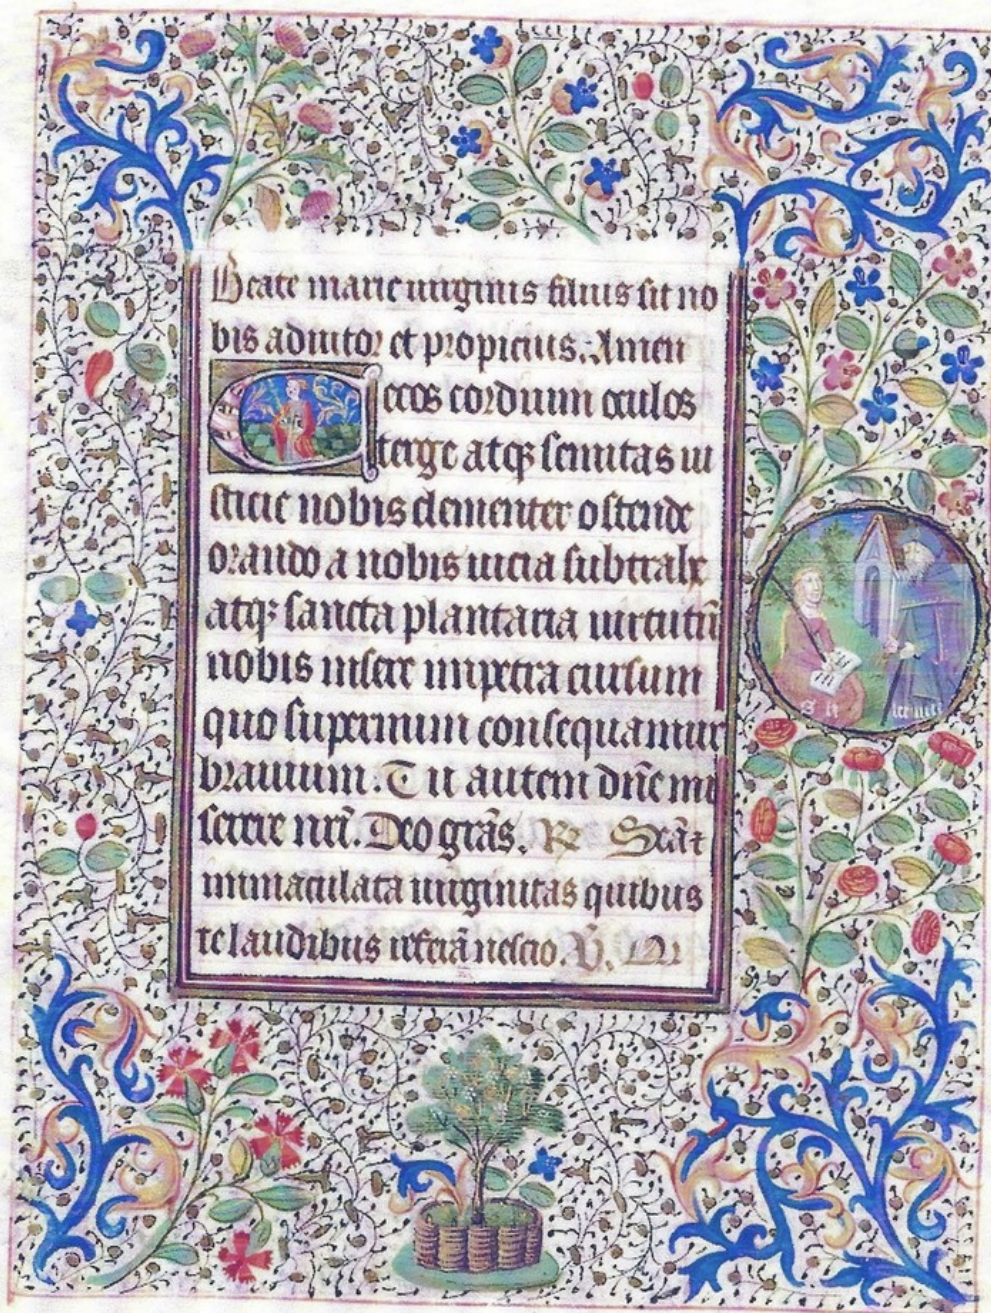 Beate marie uirginis filius sit no
bis adiutor et propicius. Amen
Cecos cordium oculos
terge atqꝫ semitas iu
sticie nobis clementer ostende
orando a nobis uicia subtrahe
atqꝫ sancta plantaria uirtutū
nobis insere impetra cursum
quo supernum consequamur
brauium. Tu autem dn̄e mi
serere nr̄i. Deo grās. R̄
immaculata uirginitas quibus
te laudibus refera͞ nescio. V̄.